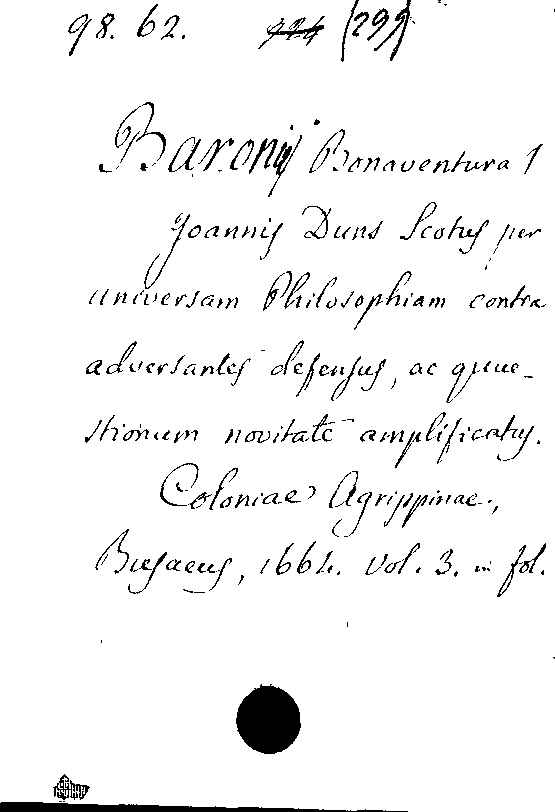 98. 62. 224 (299)
Baronij Bonaventura /
Joannis Duns Scotus per
universam Philosophiam contra
adversantes defensus, ac quae-
stionum novitate amplificatus.
Coloniae Agrippinae,
Busaeus, 1664. vol. 3. in fol.